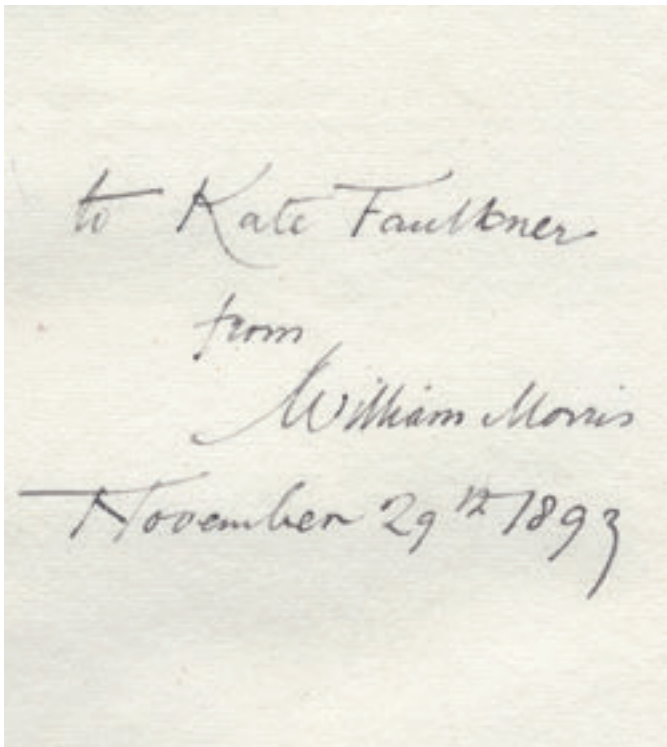 to Kate Faulkner
from
William Morris
November 29th 1893